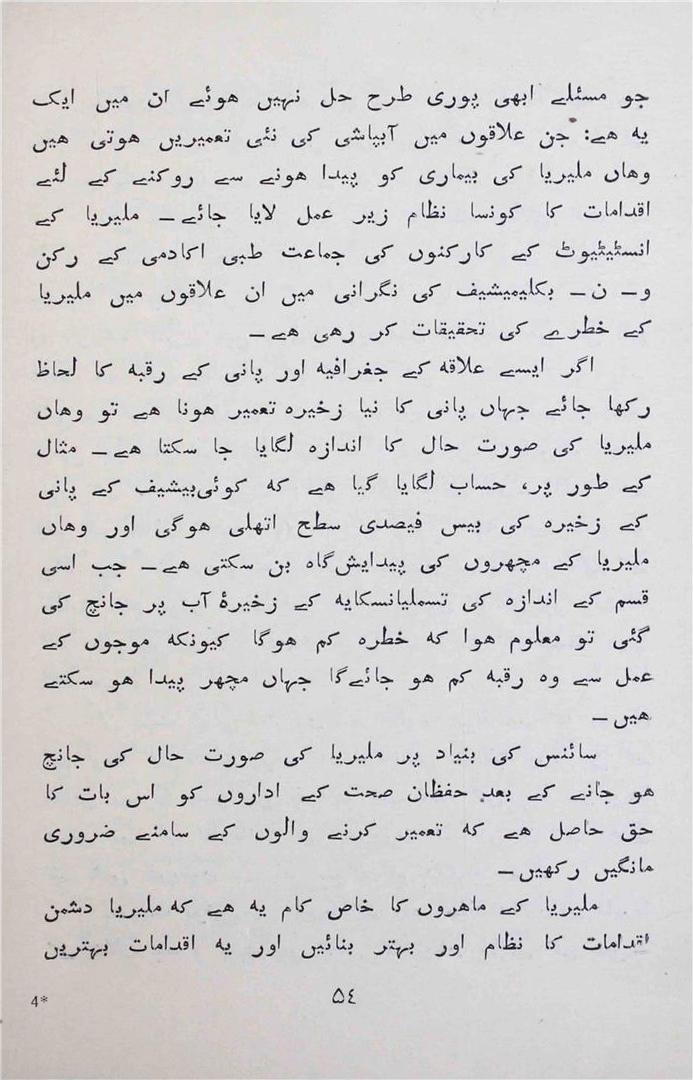 جو مسئلے ابھی پوری طرح حل نہیں ھوئے ان میں ایک
یہ ھے: جن علاقوں میں آبپاشی کی نئی تعمیریں ھوتی ھیں
وھاں ملیریا کی بیماری کو پیدا ھونے سے روکنے کے لئے
اقدامات کا کونسا نظام زیر عمل لایا جائے۔ ملیریا کے
انسٹیٹیوٹ کے کارکنوں کی جماعت طبی اکادمی کے رکن
و۔ ن۔ بکلیمیشیف کی نگرانی میں ان علاقوں میں ملیریا
کے خطرے کی تحقیقات کر رھی ھے۔
اگر ایسے علاقہ کے جغرافیہ اور پانی کے رقبہ کا لحاظ
رکھا جائے جہاں پانی کا نیا زخیرہ تعمیر ھونا ھے تو وھاں
ملیریا کی صورت حال کا اندازہ لگایا جا سکتا ھے۔ مثال
کے طور پر، حساب لگایا گیا ھے کہ کوئی‌بیشیف کے پانی
کے زخیرہ کی بیس فیصدی سطح اتھلی ھوگی اور وھاں
ملیریا کے مچھروں کی پیدایش‌گاہ بن سکتی ھے۔ جب اسی
قسم کے اندازہ کی تسملیانسکایہ کے زخیرۂ آب پر جانچ کی
گئی تو معلوم ھوا کہ خطرہ کم ھوگا کیونکہ موجوں کے
عمل سے وہ رقبہ کم ھو جائے‌گا جہاں مچھر پیدا ھو سکتے
ھیں۔
سائنس کی بنیاد پر ملیریا کی صورت حال کی جانچ
ھو جانے کے بعد حفظان صحت کے اداروں کو اس بات کا
حق حاصل ھے کہ تعمیر کرنے والوں کے سامنے ضروری
مانگیں رکھیں۔
ملیریا کے ماھروں کا خاص کام یہ ھے کہ ملیریا دشمن
اقدامات کا نظام اور بہتر بنائیں اور یہ اقدامات بہترین
۵٤
4*